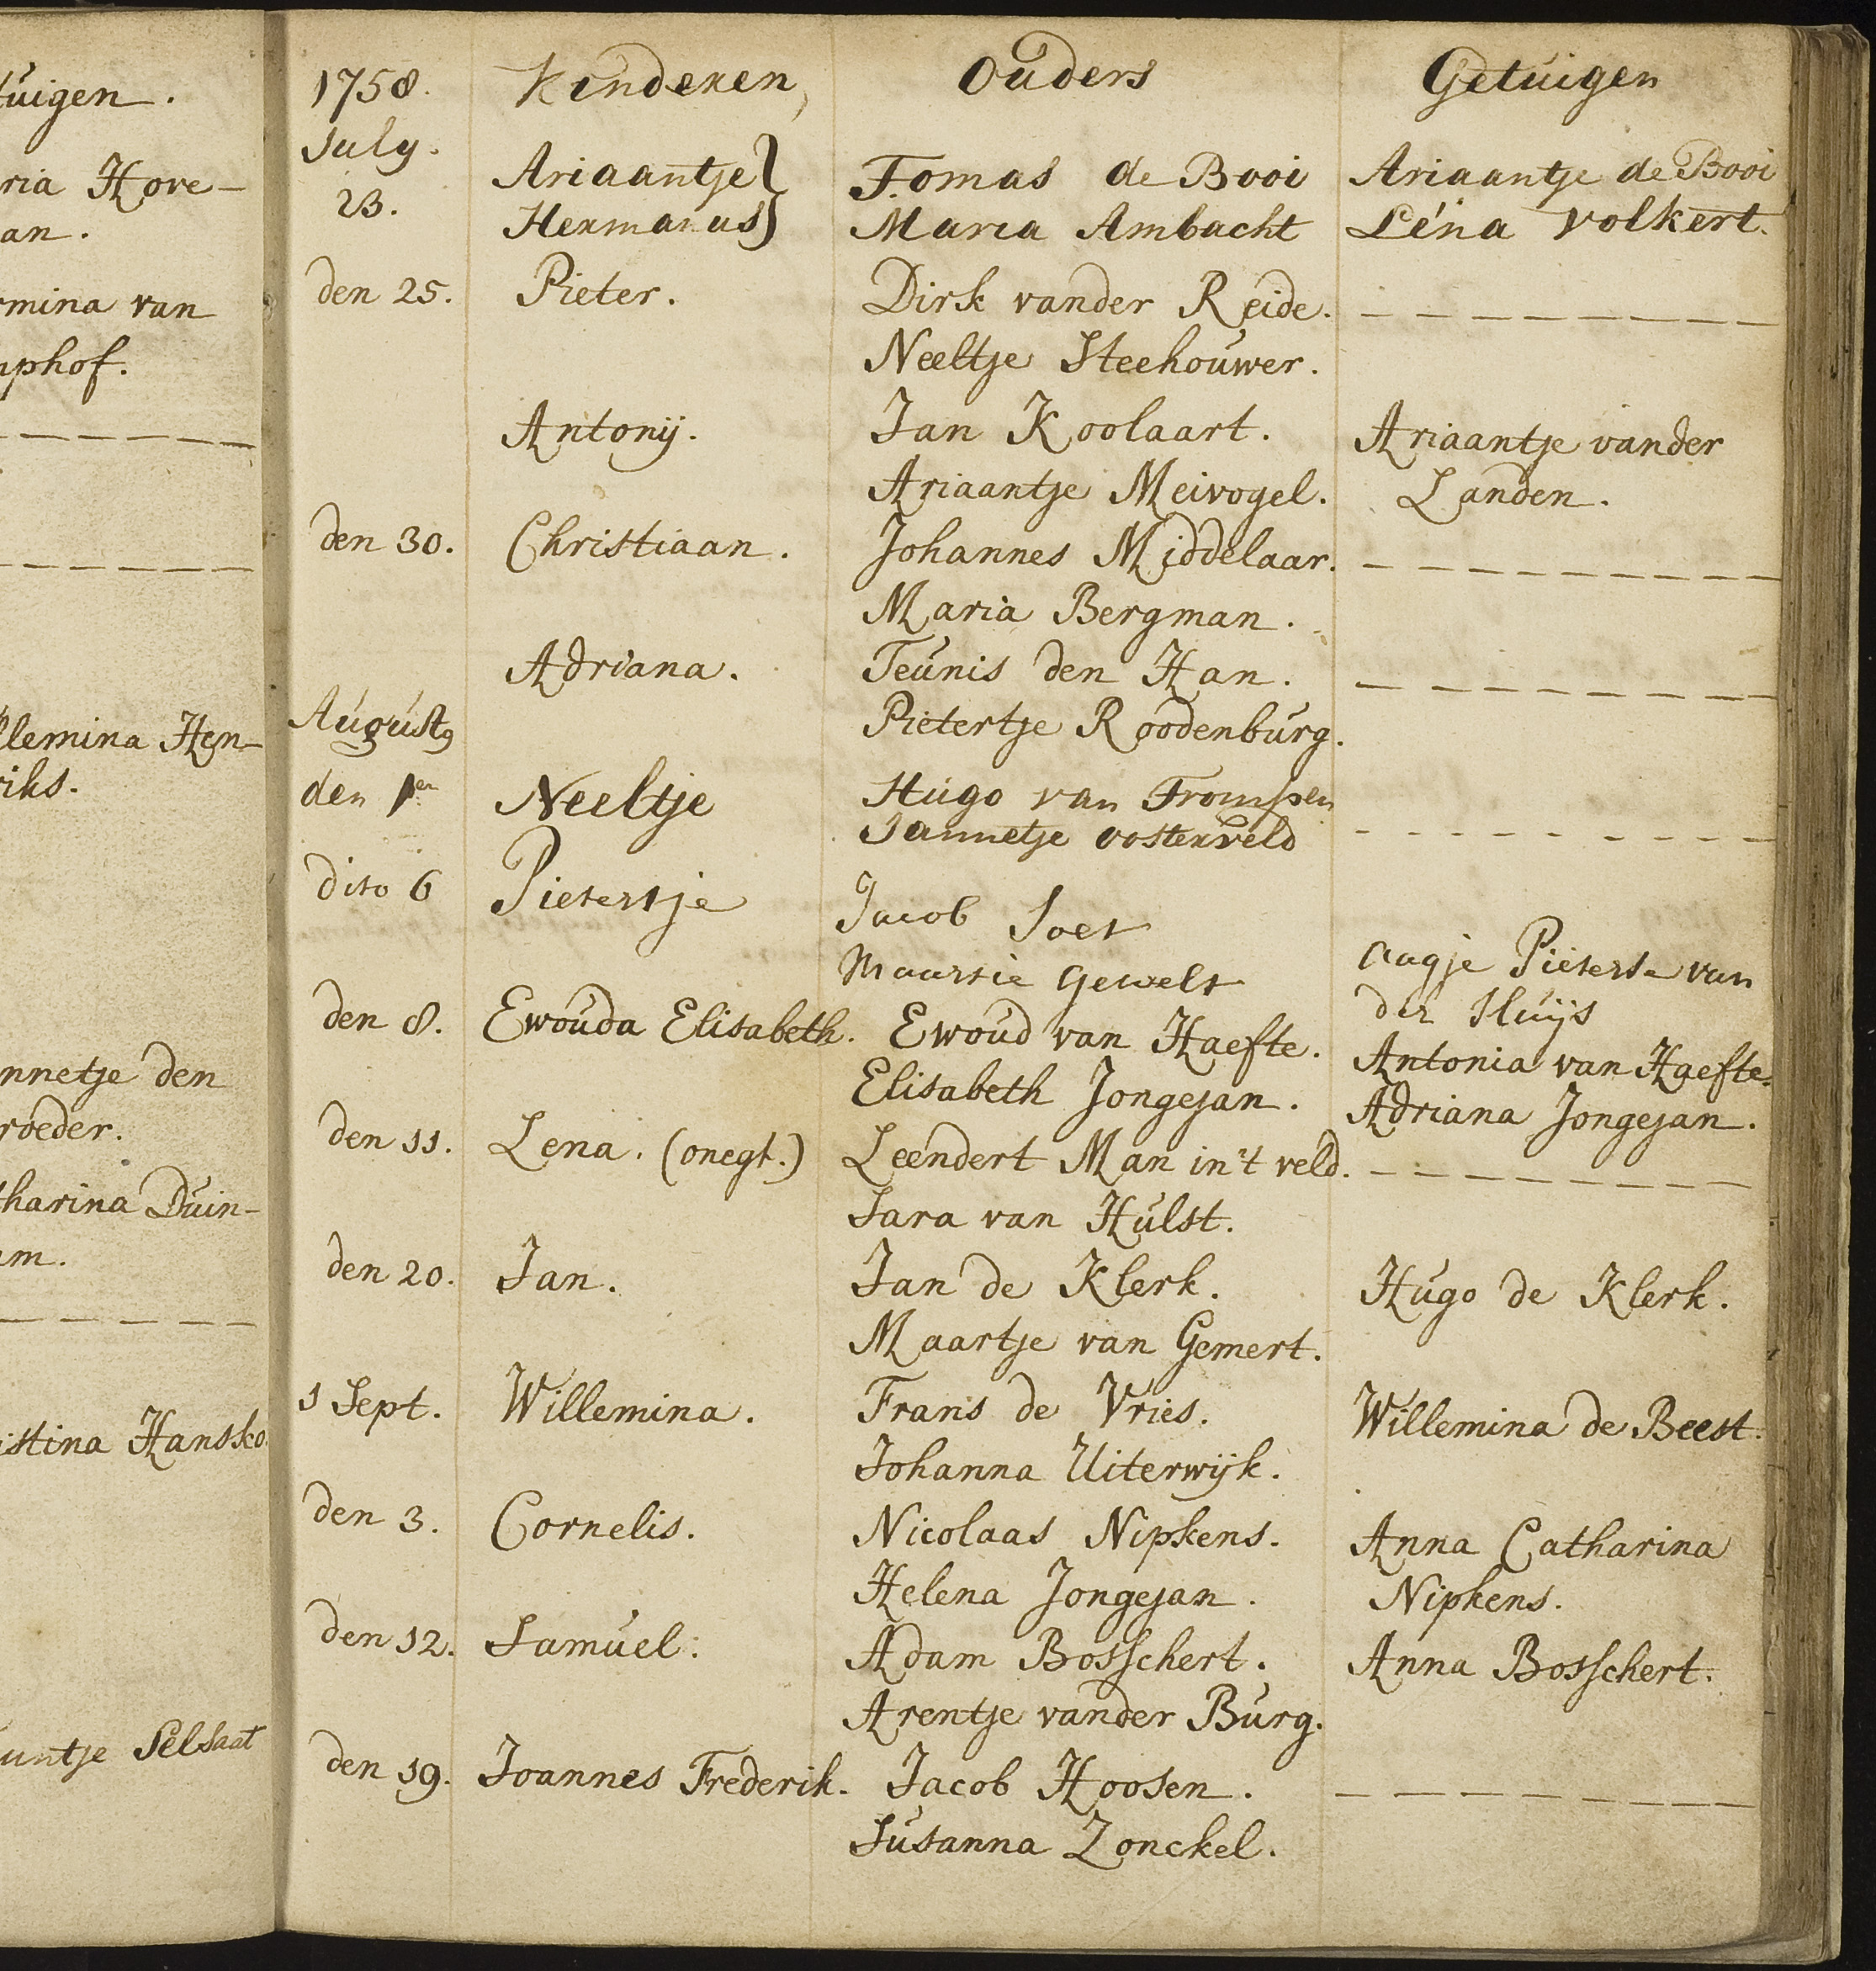 tuigen.
ria Hove-
an.
mina van
phof.
llemina Hen-
riks.
nnetje den
roeder.
tharina Duin-
m.
istina Hansko
untje Selsaat
1758. Kinderen, Ouders Getuigen
July.
23. Ariaantje} Tomas de Booi Ariaantje de Booi
Hermanus} Maria Ambacht Léna Volkert.
den 25. Pieter. Dirk vander Reide. — — — — — — — —
Neeltje Steehouwer.
Antonij. Jan Koolaart. Ariaantje vander
Ariaantje Meivogel. Landen.
den 30. Christiaan. Johannes Middelaar. — — — — — — — —
Maria Bergman.
Adriana. Teunis den Han. — — — — — — — —
August9 Pietertje Roodenburg.
den 1en Neeltje Hugo van Trompen
Jannetje oosterveld - - - - - - - -
dito 6 Pietertje Jacob Soet
Maartie Gewelt Aagje Pieterse van
der Sluijs
den 8. Ewouda Elisabeth. Ewoud van Haefte. Antonia van Haefte.
Elisabeth Jongejan. Adriana Jongejan.
den 11. Lena. (onegt.) Leendert Man in't veld. — — — — — — — —
Sara van Hulst.
den 20. Jan. Jan de Klerk. Hugo de Klerk.
Maartje van Gemert.
1 Sept. Willemina. Frans de Vries. Willemina de Beest.
Johanna Uiterwijk.
den 3. Cornelis. Nicolaas Nipkens. Anna Catharina
Helena Jongejan. Nipkens.
den 12. Samuel. Adam Bosschert. Anna Bosschert.
Arentje vander Burg.
den 19. Joannes Frederik. Jacob Hoosen. — — — — — — — —
Susanna Zonckel.